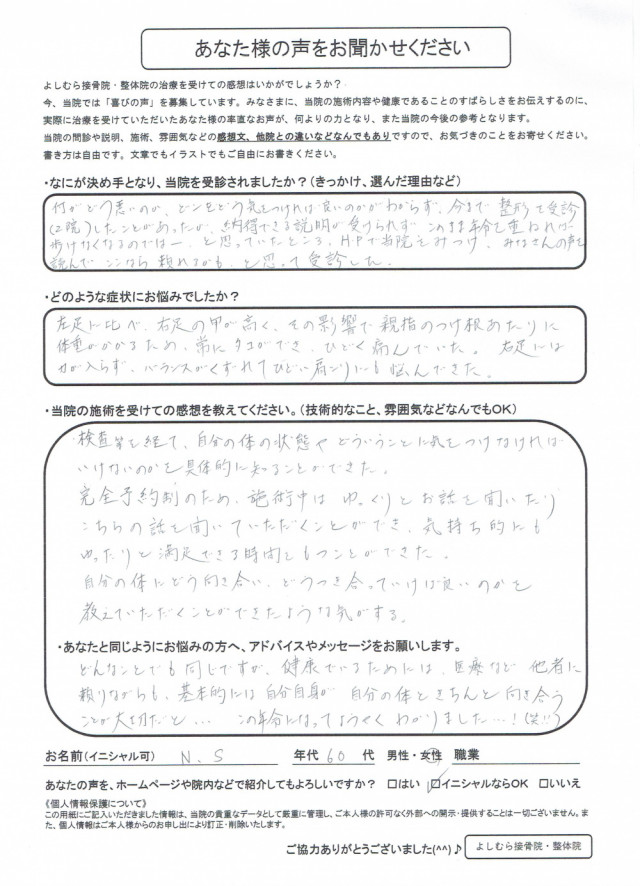 あなた様の声をお聞かせください
よしむら接骨院・整体院の治療を受けての感想はいかがでしょうか?
今、当院では「喜びの声」を募集しています。みなさまに、当院の施術内容や健康であることのすばらしさをお伝えするのに、
実際に治療を受けていただいたあなた様の率直なお声が、何よりの力となり、また当院の今後の参考となります。
当院の問診や説明、施術、雰囲気などの感想文、他院との違いなどなんでもありですので、お気づきのことをお寄せください。
書き方は自由です。文章でもイラストでもご自由にお書きください。
・なにが決め手となり、当院を受診されましたか?(きっかけ、選んだ理由など)
何がどう悪いのか、どこをどう気をつければ良いのかがわからず、今まで整形を受診
(2院)したことがあったが、納得できる説明が受けられず このまま年令を重ねれば
歩けなくなるのでは一、と思っていたところ、H.Pで当院をみつけ、みなさんの声を
読んで ここなら頼れるかも、と思って受診した。
・どのような症状にお悩みでしたか?
左足に比べ、右足の甲が高く、その影響で親指のつけ根あたりに
体重がかかるため、常にタコができ、ひどく痛んでいた。 右足には
力が入らず、バランスがくずれてひどい肩こりにも悩んできた。
・当院の施術を受けての感想を教えてください。(技術的なこと、雰囲気などなんでもOK)
検査等を経て、自分の体の状態や どういうことに気をつけなければ
いけないのかを具体的に知ることができた。
完全予約制のため、施術中は ゆっくりとお話を聞いたり
こちらの話を聞いていただくことができ、気持ち的にも
ゆったりと満足できる時間をもつことができた。
自分の体にどう向き合い、どうつき合っていけば良いのかを
教えていただくことができたような気がする。
・あなたと同じようにお悩みの方へ、アドバイスやメッセージをお願いします。
どんなことでも同じですが、健康でいるためには、医療など 他者に
頼りながらも、基本的には自分自身が 自分の体ときちんと向き合う
ことが大切だと… この年令になってようやくわかりました…!(笑!!)
お名前(イニシャル可) N.S 年代 60 代 男性・女性 職業
あなたの声を、ホームページや院内などで紹介してもよろしいですか? □はい ☑イニシャルならOK □いいえ
《個人情報保護について》
この用紙にご記入いただきました情報は、当院の貴重なデータとして厳重に管理し、ご本人様の許可なく外部への開示・提供することは一切ございません。ま
た、個人情報はご本人様からのお申し出により訂正・削除いたします。
ご協力ありがとうございました(^^)♪ よしむら接骨院・整体院